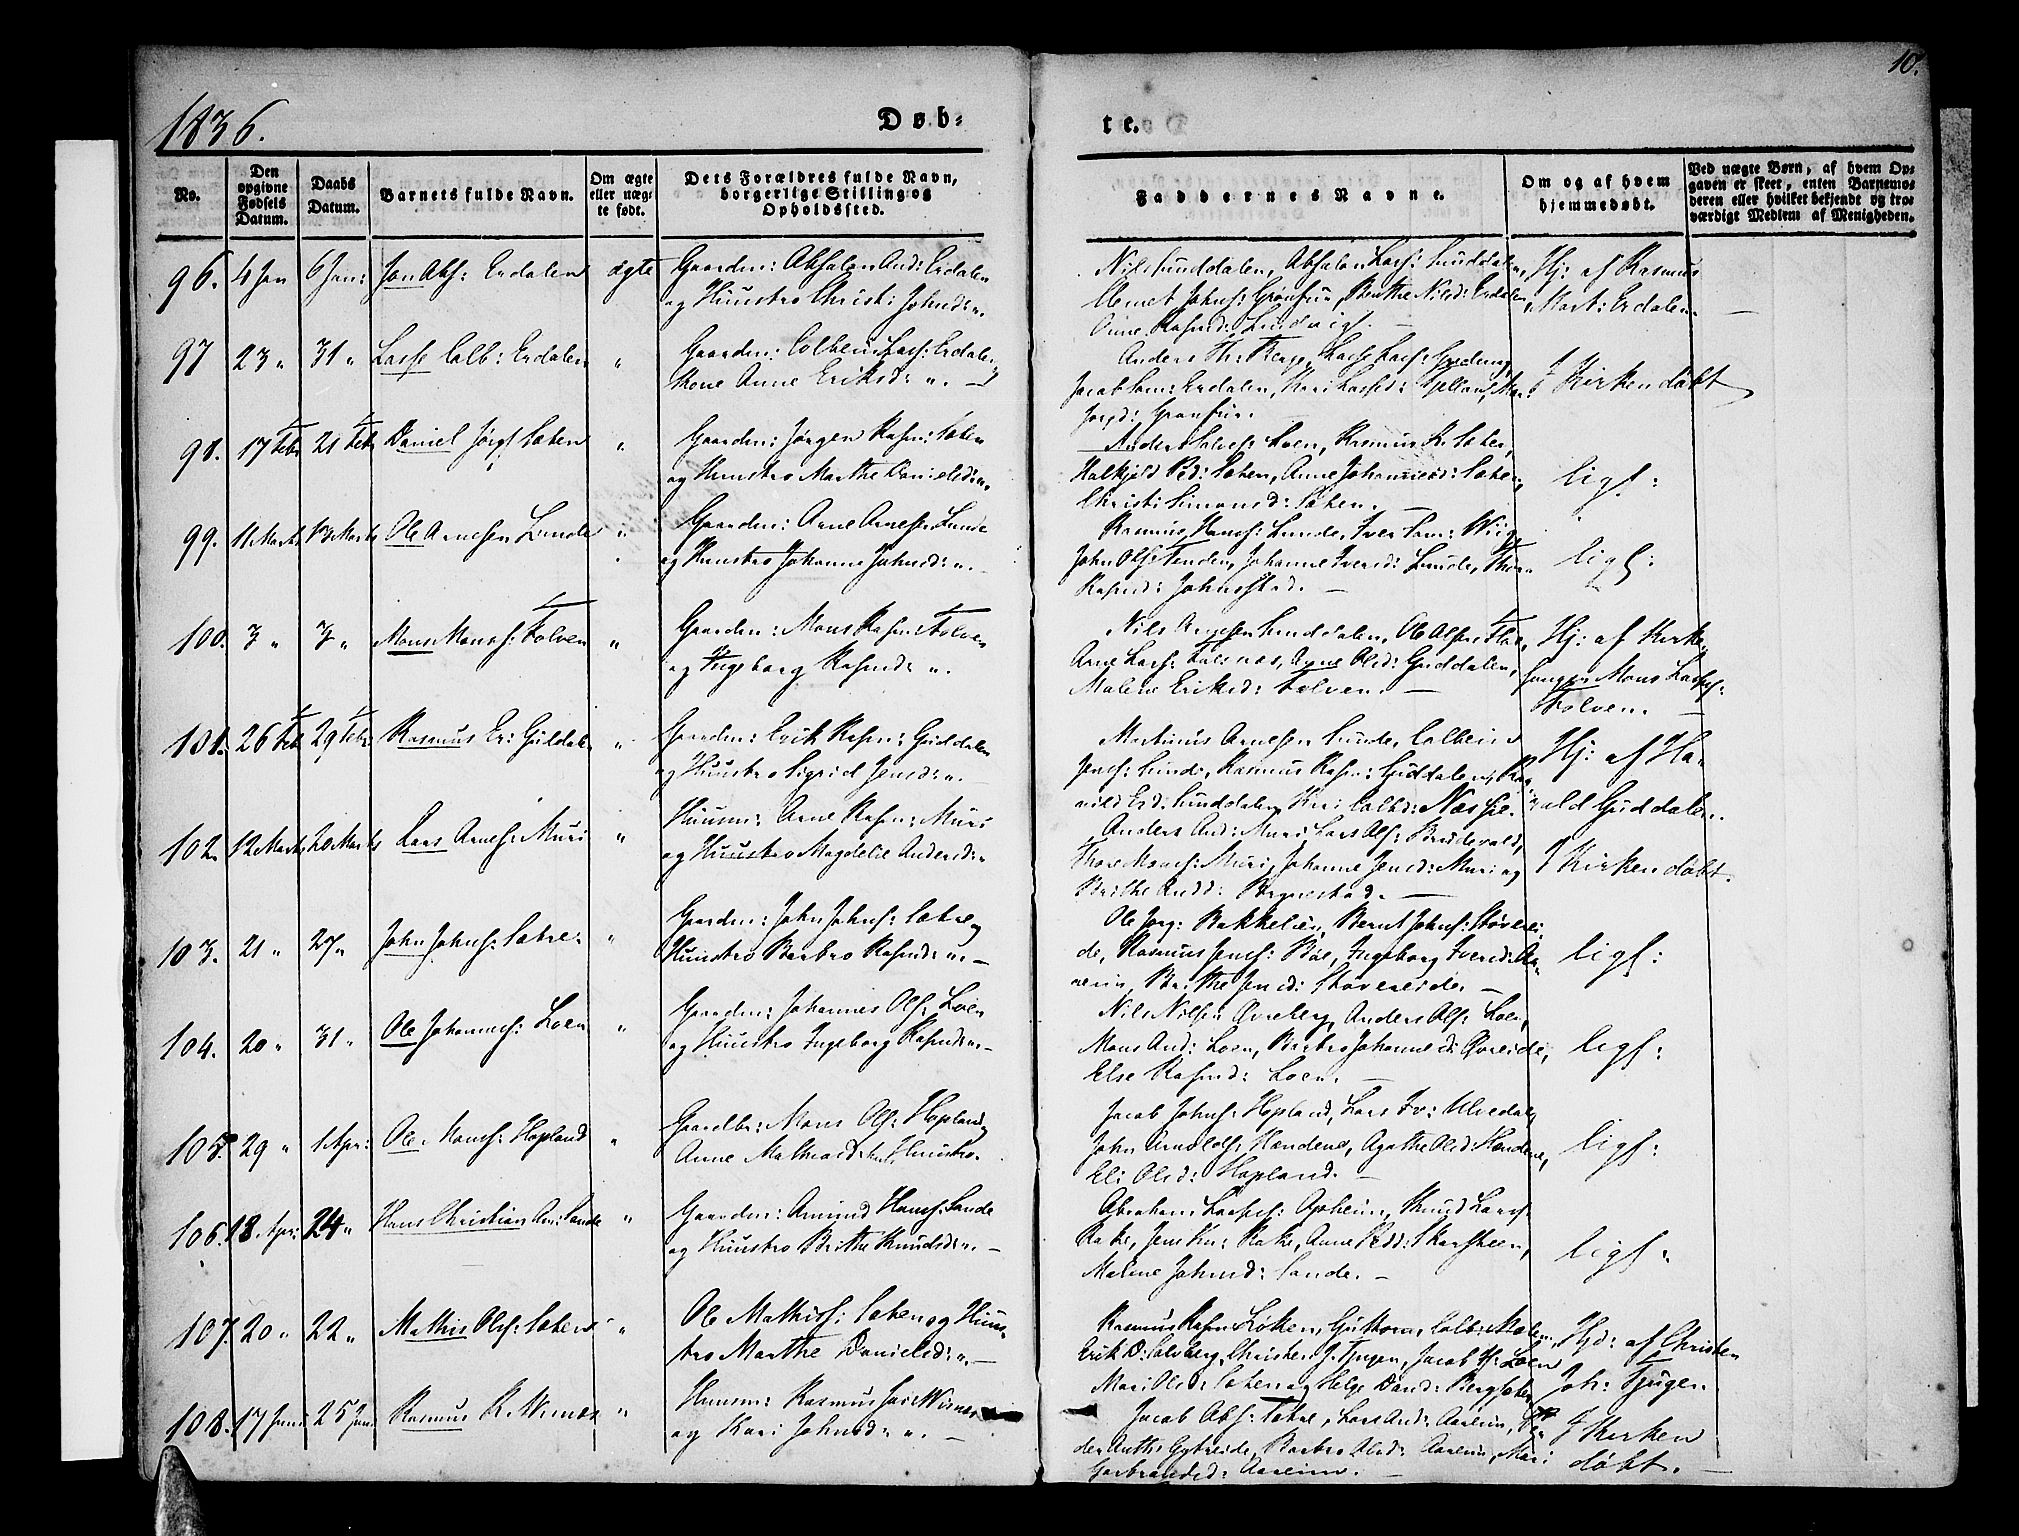 10.
1836.
Døb-
te.
No.
Den opgivne Fødsels Datum.
Daabs Datum.
Barnets fulde Navn.
Om ægte eller uægte født.
Dets Forældres fulde Navn, borgerlige Stilling og Opholdssted.
Faddernes Navne.
Om og af hvem hjemmedøbt.
Ved uægte Børn, af hvem Opgaven er skeet, enten Barnemoderen eller hvilket bekjendt og troværdigt Medlem af Menigheden.
96. 4 Jan 6 Jan: Jon Abs: Erdalen ægte Gaardm: Absalon And: Erdalen
og Huustro Christi Johnsd: „.
Nils Sunddalen, Absalon Lass: Sunddalen,
Clemet Johns: Grønfur, Berthe Nilsd: Erdalen,
Anne Rasmd: Lundvig.
Hj: af Rasmus
Mart: Erdalen. —
97 23 „ 31 „ Lasse Colb: Erdalen „ Gaardm: Colbein Lass: Erdalen
Kone Anne Eriksd: „. —
Anders Th: Berge, Lasse Lass:
Jacob Sam: Erdalen, Kari Lassesd:
Grønfur.
I Kirken døbt
98. 17 Febr 21 Febr Daniel Jørgs: Sæten „ Gaardm: Jørgen Rasm: Sæten
og Huustro Marthe Danielsd: „.
Anders Loen, Rasmus R: Sæten,
Halkjeld Ped: Sæten, Anne Johannesd: Sæten,
Christi Simonsd: Sæten. —
ligs:
99. 11 Marts 13 Marts Ole Arnesen Lunde „ Gaardm: Arne Arnesen Lunde
og Huustro Johanne Johnsd: „. —
Rasmus Hans: Lunde, Iver Wiig,
John Ols: Tenden, Johanne Iversd: Lunde,
Rasmd: Johnsstad. —
ligs:
100. 3 „ 3 „ Mons Monss: Folven „ Gaardm: Mons Rasm: Folven
og Ingeborg Rasmd: „.
Nils Arnesen Sunddalen, Ole Olsen Flo,
Arne Lass: , Anne Olsd: Guddalen,
Malene Eriksd: Folven. —
Hj: af Kirke-
sanger Mons Lasses:
Folven. —
101. 26 Feb 29 Febr: Rasmus Er: Guddalen „ Gaardm: Erik Rasm: Guddalen
og Huustro Sigrid Jensd: „.
Martinus Arnesen Sunde, Colbein
Jens: Sunde, Rasmus Rasm: Guddalen,
Sunddalen, Colbd: Næssje.
Hj: af Ha-
rald Guddalen.
102. 12 Marts 20 Marts Lars Arnes: Muri „ Huusm: Arne Rasm: Muri
og Huustro Magdele Andersd: „
Anders And: Muri, Lars Ols: Brudevold,
Thore Monss: Muri, Johanne Jensd: Muri og
Brithe Andd: Bergestad. —
I Kirken døbt.
103. 21 „ 27 „ John Johns: Sætre. „ Gaardm: John Johns: Sætre og
Huustro Barbro Rasmd: „. —
Ole Jørg: Bakkelien, Bernt Johns: Støverei-
de, Rasmus Jens: Bøe, Ingeborg Iversd: Aa-
reim, Brithe Jensd: Støvereide. —
ligs:
104. 20 „ 31 „ Ole Johannes: Loen „ Gaardm: Johannes Ols: Loen
og Huustro Ingeborg Rasmd: „. —
Nils Nilsen Øvreberg, Anders Ols: Loen,
Mons And: Loen, Barbro Johannesd: Øvreide,
Else Rasmd: Loen. —
ligs:
105. 29 „ 1 Apr: Ole Monss: Hopland „ Gaardbr: Mons Ols: Hopland og
Anne Mathiasd: hans Huustro.
Jacob Johns: Hopland, Lars Iv: Ulvedal,
John Arnolds: Hændene, Agathe Olsd: Hændene,
Eli Olsd: Hopland. —
ligs:
106. 18 Apr: 24 „ Hans Christian Am: Sande „ Gaardm: Amund Hans: Sande
og Huustro Brithe Knudsd: „. —
Abraham Lasses: Apheim, Knud Lars:
Rake, Jens Kn: Rake, Anne Pedd: Skarsteen,
Malene Johnsd: Sande. —
ligs:
107. 20 „ 22 „ Mathis Ols: Sæten „ Ole Mathiss: Sæten og Huus-
tro Marthe Danielsd: „. —
Rasmus Rasm: Løken, Guttorm Colb: Mælen,
Erik D: Solberg, Christen J. Tjugen, Jacob H: Loen
Mari Olsd: Sæten og Helge Dand: Bergsæten
Hjd: af Christen
Joh: Tjugen.
108. 17 Juni 25 Juni Rasmus R. Wemes „ Huusm: Rasmus
og Kari Johnsd: „. —
Jacob Abs: Sætre, Lars And: Aareim, Pe-
der Anths: Gytreide, Barbro Olsd: Aareim, Mari
Gørbrandsd: Aareim. —
I Kirken
døbt. —